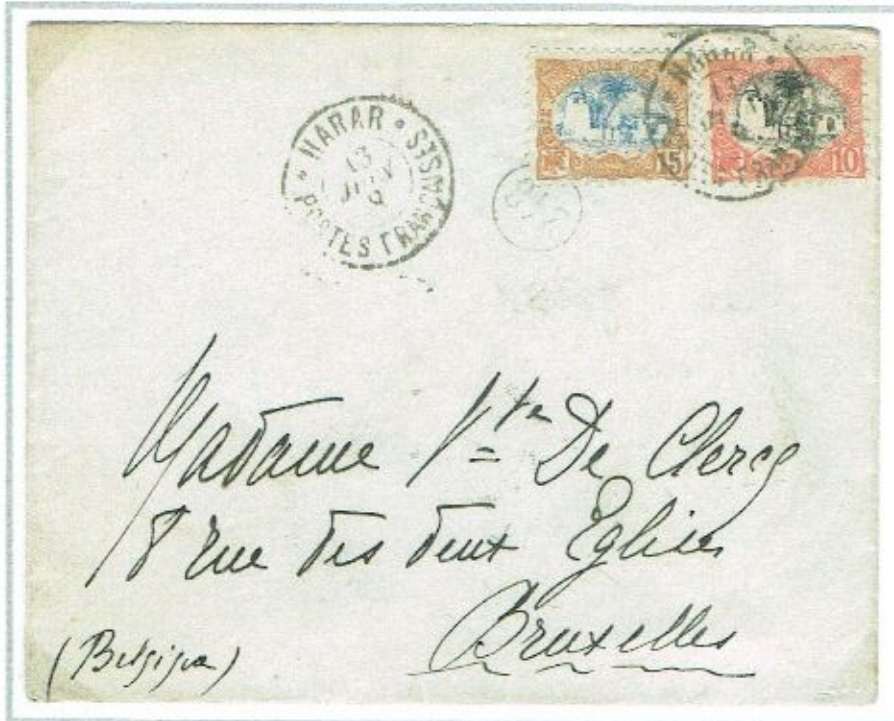 HARAR
13
JUIN
POSTES FRANÇAISES
HARAR
13
15
10
Madame De Clercq
8 rue des deux Eglises
Bruxelles
(Belgique)